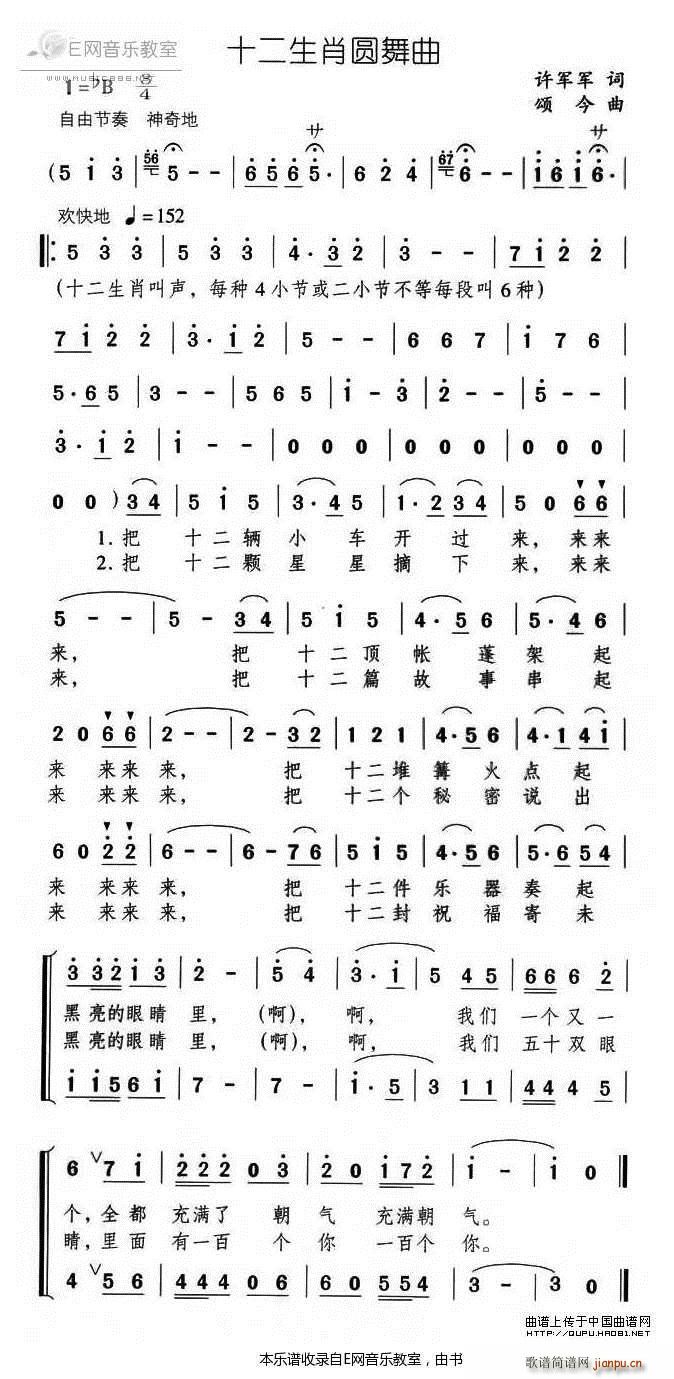 E网音乐教室
WWW.MUSIC888.NET
十二生肖圆舞曲
1=♭B 3/4
许军军 词
颂 今 曲
自由节奏 神奇地
サ サ
(5 1 3 | 56 5 - - | 6 5 6 5 · | 6 2 4 | 67 6 - - | 1 6 1 6 ·
欢快地 ♩=152
‖: 5 3 3 | 5 3 3 | 4 · 3 2 | 3 - - | 7 1 2 2 |
(十二生肖叫声,每种4小节或二小节不等每段叫6种)
7 1 2 2 | 3 · 1 2 | 5 - - | 6 6 7 | 1 7 6 |
5 · 6 5 | 3 - - | 5 6 5 | 1 - 3 | 2 - - | 5 - - |
3 · 1 2 | 1 - - | 0 0 0 | 0 0 0 | 0 0 0 | 0 0 0 |
0 0 ) 3 4 | 5 1 5 | 3 · 4 5 | 1 · 2 3 4 | 5 0 6 6 |
1.把 十二辆 小 车 开 过 来, 来来
2.把 十二颗 星 星 摘 下 来, 来来
5 - - | 5 - 3 4 | 5 1 5 | 4 · 5 6 | 5 · 4 5 6 |
来, 把 十二顶 帐 蓬 架 起
来, 把 十二篇 故 事 串 起
2 0 6 6 | 2 - - | 2 - 3 2 | 1 2 1 | 4 · 5 6 | 4 · 1 4 1 |
来 来来 来, 把 十二堆 篝 火 点 起
来 来来 来, 把 十二个 秘 密 说 出
6 0 2 2 | 6 - - | 6 - 7 6 | 5 1 5 | 4 · 5 6 | 5 · 6 5 4 |
来 来来 来, 把 十二件 乐 器 奏 起
来 来来 来, 把 十二封 祝 福 寄 未
3 3 2 1 3 | 2 - | 5 4 | 3 · 1 | 5 4 5 | 6 6 6 2 |
黑 亮的眼睛 里, (啊), 啊, 我们 一个又一
黑 亮的眼睛 里, (啊), 啊, 我们 五十双眼
1 1 5 6 1 | 7 - | 7 - | 1 · 5 | 3 1 1 | 4 4 4 5 |
6 ∨ 7 1 | 2 2 2 0 3 | 2 0 1 7 2 | 1 - | 1 0 ‖
个,全都 充满了 朝 气 充满朝 气。
睛,里面 有一百 个 你 一百个 你。
4 ∨ 5 6 | 5 5 5 0 6 | 6 0 5 5 4 | 3 - | 3 0 ‖
曲谱上传于中国曲谱网
HTTP://QUPU.HAO81.NET
本乐谱收录自E网音乐教室,由书
歌谱简谱网 jianpu.cn